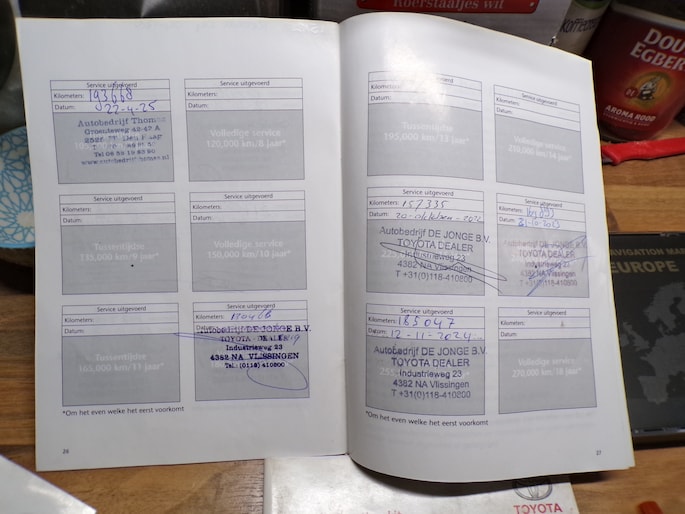 Roerstaafjes wit
DOU
EGBER
AROMA ROOD
Service uitgevoerd
Kilometers: 193668
Datum: 22-4-25
Autobedrijf Thomas
Groenteweg 42-47 A
Service uitgevoerd
Kilometers:
Datum:
Volledige service
120,000 km/8 jaar*
Service uitgevoerd
Kilometers:
Datum:
Tussentijdse
135,000 km/9 jaar*
Service uitgevoerd
Kilometers:
Datum:
Volledige service
150,000 km/10 jaar*
Service uitgevoerd
Kilometers:
Datum:
Tussentijdse
165,000 km/11 jaar*
Service uitgevoerd
Kilometers:
Autobedrijf DE JONGE B.V.
TOYOTA DEALER
Industrieweg 23
4382 NA VLISSINGEN
Tel.: (0118) 410800
*Om het even welke het eerst voorkomt
26
Service uitgevoerd
Kilometers:
Datum:
Tussentijdse
195,000 km/13 jaar*
Service uitgevoerd
Kilometers:
Datum:
Volledige service
Service uitgevoerd
Kilometers: 157335
Datum: 20-oktober-2022
Autobedrijf DE JONGE B.V.
TOYOTA DEALER
Industrieweg 23
4382 NA Vlissingen
T +31(0)118-410800
Service uitgevoerd
Kilometers:
Datum:
Autobedrijf DE JONGE B.V.
TOYOTA DEALER
Industrieweg 23
4382 NA Vlissingen
T +31(0)118-410800
Service uitgevoerd
Kilometers: 185047
Datum: 12-11-2024
Autobedrijf DE JONGE B.V.
TOYOTA DEALER
Industrieweg 23
4382 NA Vlissingen
T +31(0)118-410800
Service uitgevoerd
Kilometers:
Datum:
Volledige service
270,000 km/18 jaar*
*Om het even welke het eerst voorkomt
27
NAVIGATION MA
EUROPE
TOYOTA